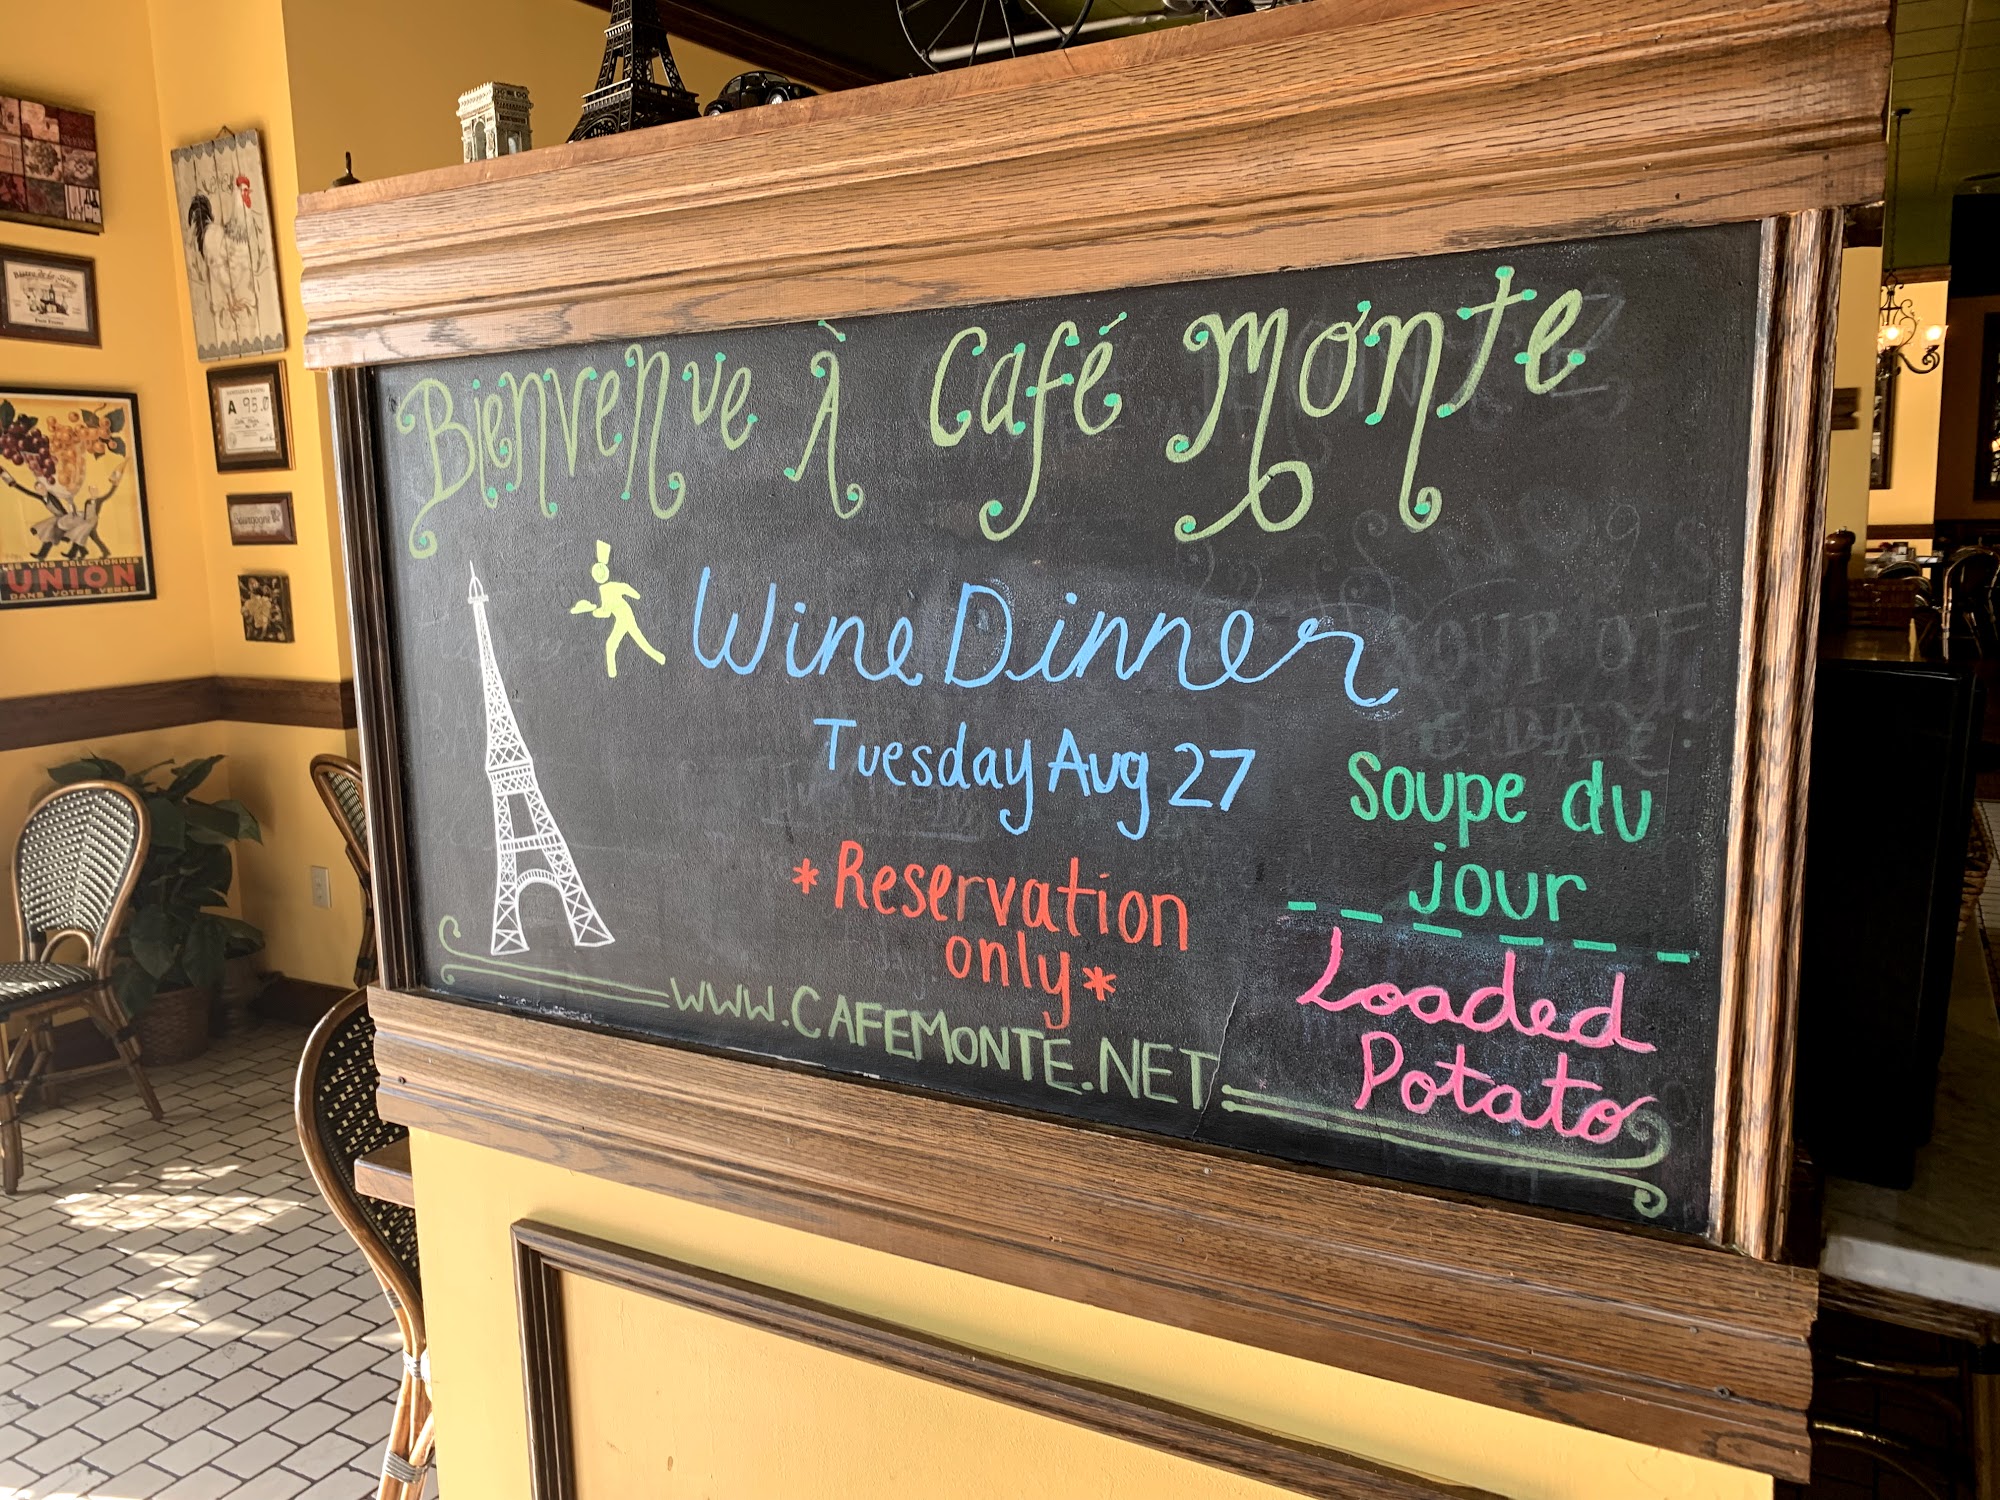 Bienvenue À Café Monte
Wine Dinner
Tuesday Aug 27
*Reservation
only*
Soupe du
jour
Loaded
Potato
WWW.CAFEMONTE.NET
A 95.0
LES VINS SÉLECTIONNÉS
UNION
DANS VOTRE VERRE
SOUP OF